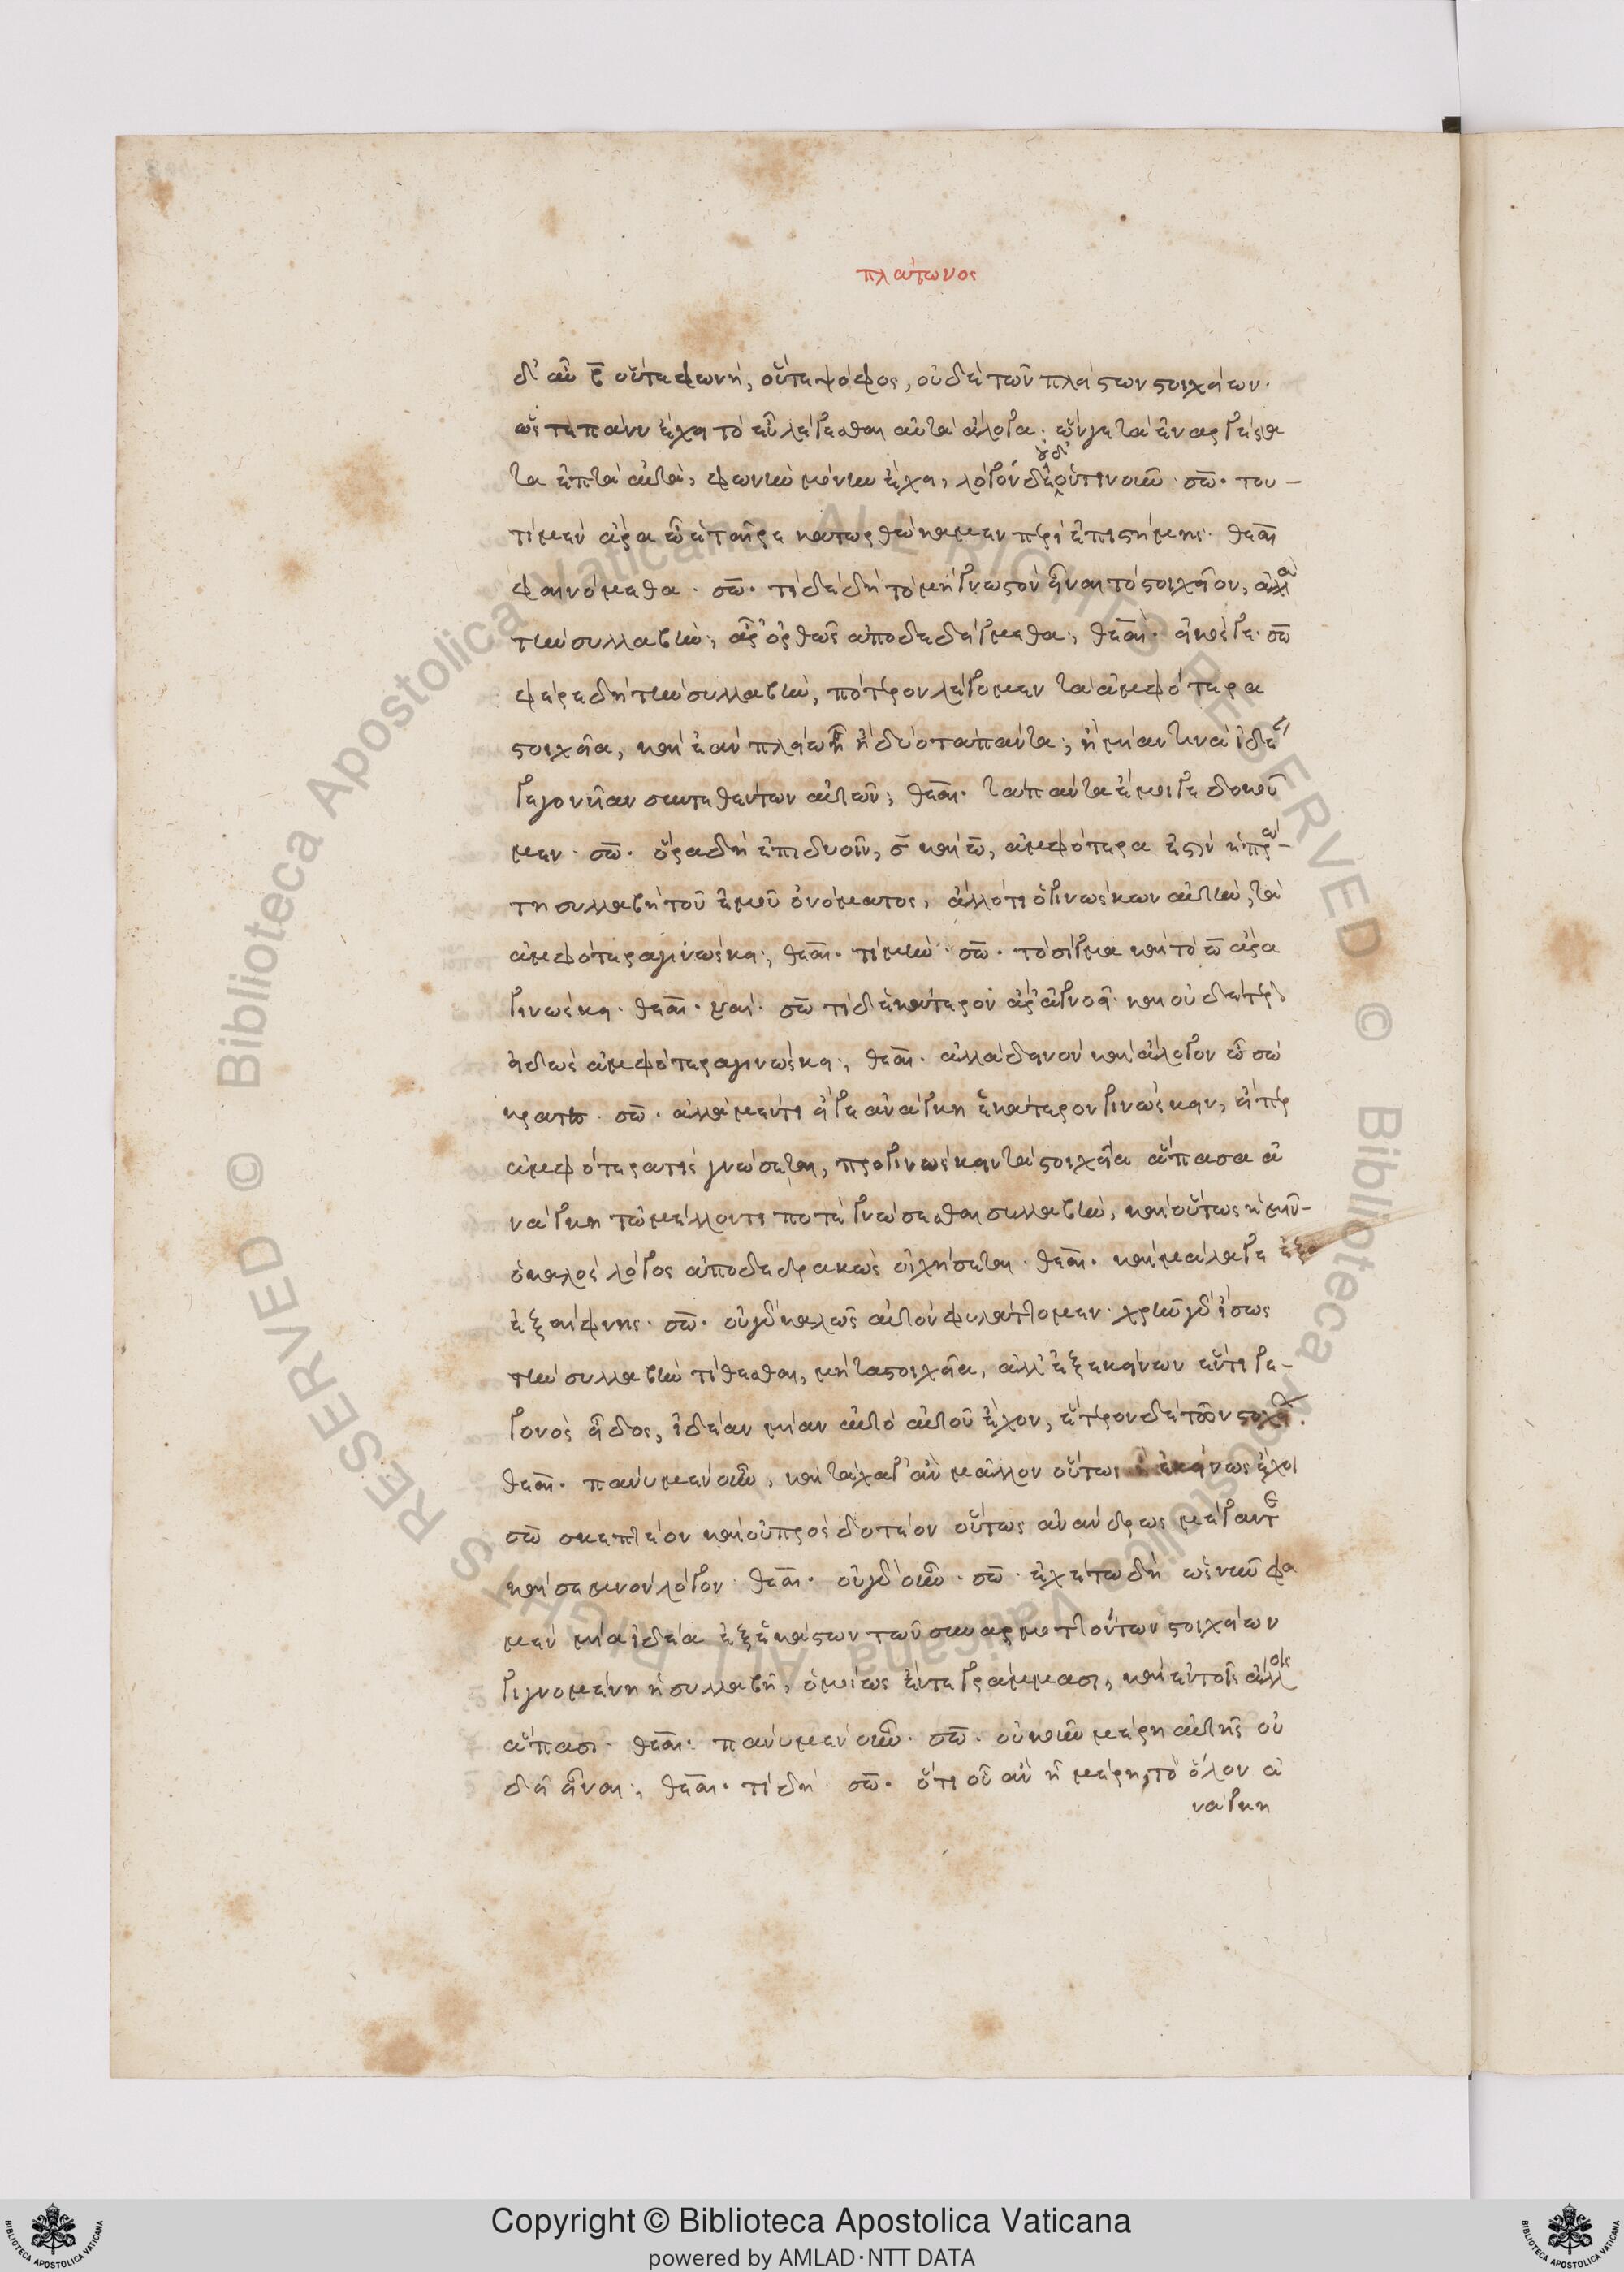 πλάτωνος
δ' αὖ β̄ οὔτε φωνή, οὔτε ψόφος, οὐδὲ τῶν πλείστων στοιχείων·
ὥστε πάνυ ἔχει τὸ εὖ λέγεσθαι αὐτὰ ἄλογα· ὧν γε τὰ ἐναργέστα
τα ἑπτὰ αὐτὰ, φωνὴν μόνην ἔχει, λόγον δὲ οὐδ' ὁντινοῦν· σω̄· του-
τὶ μὲν ἄρα ὦ ἑταῖρε κατωρθώκαμεν περὶ ἐπιστήμης· θεαι
φαινόμεθα· σω̄· τί δὲ δὴ τὸ μὴ γνωστὸν εἶναι τὸ στοιχεῖον, ἀλλὰ
τὴν συλλαβὴν; ἆρ' ὀρθῶς ἀποδεδείγμεθα; θεαι· εἰκός γε· σω̄
φέρε δὴ τὴν συλλαβὴν, πότερον λέγομεν τὰ ἀμφότερα
στοιχεῖα, καὶ ἐὰν πλείω ᾖ ἢ δύο τὰ πάντα; ἢ μίαν τινὰ ἰδέαν
γεγονυῖαν συντεθέντων αὐτῶν; θεαι· τὰ πάντα ἔμοιγε δοκοῦ
μεν· σω̄· ὅρα δὴ ἐπὶ δυοῖν, σ̄ καὶ ω̄, ἀμφότερά ἐστιν ἡ πρώ-
τη συλλαβὴ τοῦ ἐμοῦ ὀνόματος, ἄλλό τι ὁ γινώσκων αὐτὴν, τὰ
ἀμφότερα γινώσκει; θεαι· τί μὴν· σω̄· τὸ σίγμα καὶ τὸ ω̄ ἄρα
γινώσκει· θεαι· ναί· σω̄ τί δ' ἑκάτερον ἆρ' ἀγνοεῖ· καὶ οὐδέτερον
εἰδὼς ἀμφότερα γινώσκει; θεαι· ἀλλὰ δεινὸν καὶ ἄλογον ὦ σώ
κρατες· σω̄· ἀλλὰ μέντοι εἴ γε ἀνάγκη ἑκάτερον γινώσκειν, εἴπερ
ἀμφότερά τις γνώσεται, προγινώσκειν τὰ στοιχεῖα ἅπασα ἀ
νάγκη τῷ μέλλοντί ποτε γνώσεσθαι συλλαβὴν, καὶ οὕτως ἡμῖν-
ὁ καλὸς λόγος ἀποδεδρακὼς οἰχήσεται· θεαι· καὶ μάλα γε ἐξα
ἐξαίφνης· σω̄· οὐ γὰρ καλῶς αὐτὸν φυλάττομεν· χρῆν γὰρ ἴσως
τὴν συλλαβὴν τίθεσθαι, μὴ τὰ στοιχεῖα, ἀλλ' ἐξ ἐκείνων ἕν τι γε-
γονὸς εἶδος, ἰδέαν μίαν αὐτὸ αὑτοῦ ἔχον, ἕτερον δὲ τῶν στοιχείων·
θεαι· πάνυ μὲν οὖν, καὶ τάχα γ' ἂν μᾶλλον οὕτως ἢ ἐκείνως ἔχοι
σω̄ σκεπτέον καὶ οὐ προδοτέον οὕτως ἀνάνδρως μέγαν τε
καὶ σεμνὸν λόγον· θεαι· οὐ γὰρ οὖν· σω̄· ἐχέτω δὴ ὡς νῦν φα
μὲν μία ἰδέα ἐξ ἑκάστων τῶν συναρμοττόντων στοιχείων
γιγνομένη ἡ συλλαβὴ, ὁμοίως ἔν τε γράμμασι, καὶ ἐν τοῖς ἄλλοις
ἅπασι· θεαι· πάνυ μὲν οὖν· σω̄· οὐκοῦν μέρη αὐτῆς οὐ
δεῖ εἶναι; θεαι· τί δή· σω̄· ὅτι οὗ ἂν ᾖ μέρη, τὸ ὅλον ἀ
νάγκη